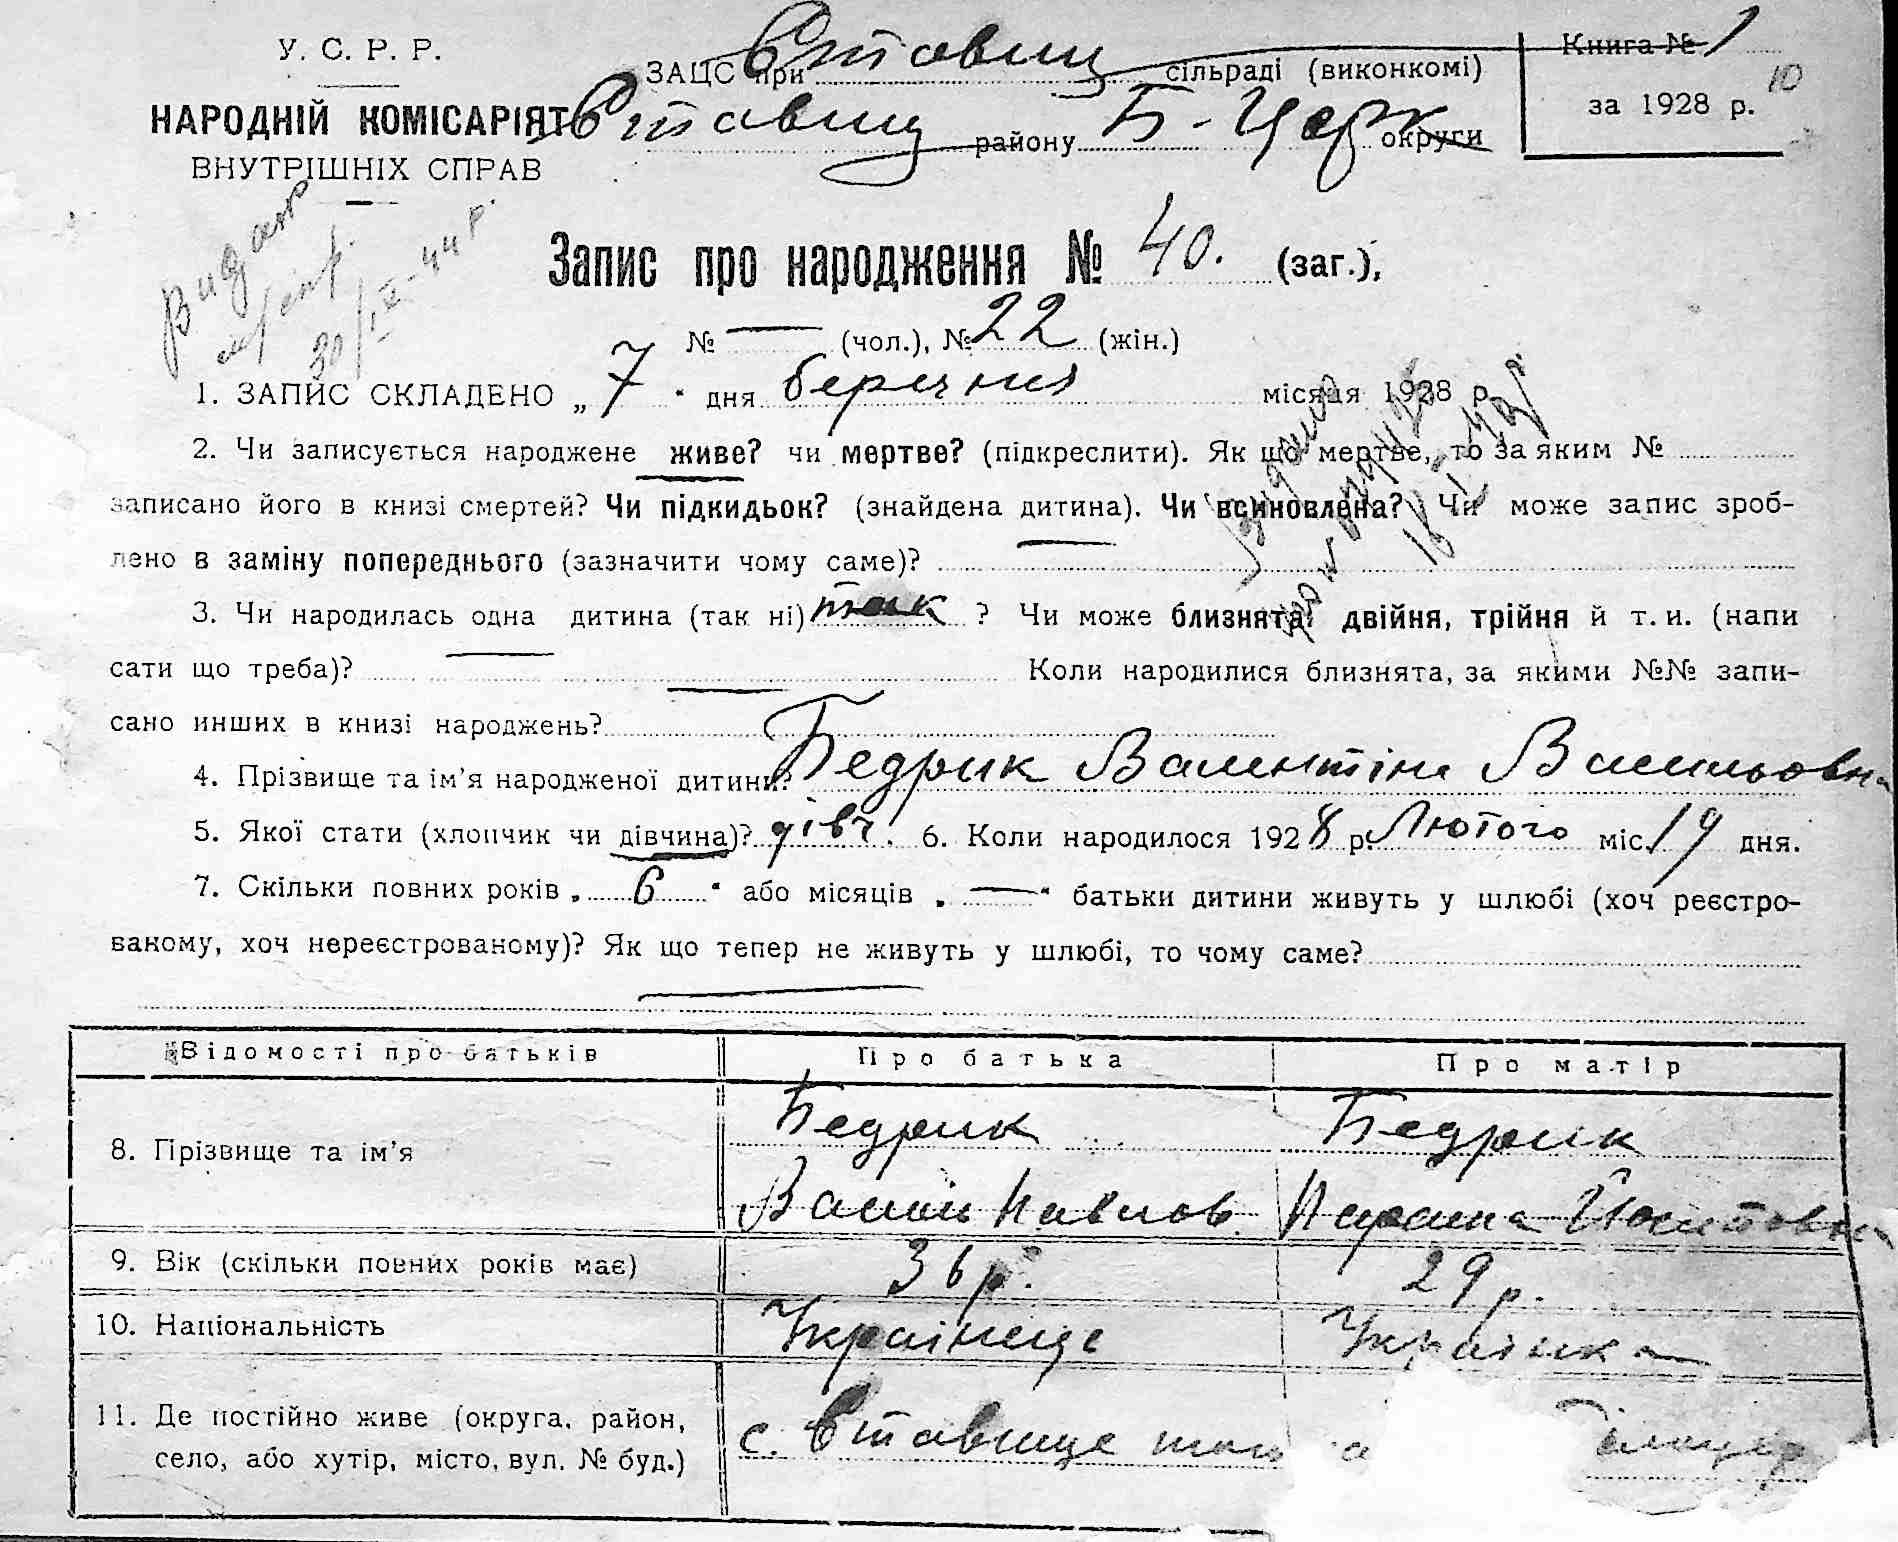 У. С. Р. Р.
НАРОДНІЙ КОМІСАРІЯТ
ВНУТРІШНІХ СПРАВ
ЗАЦС при Ставищ сільраді (виконкомі)
Ставищ району Б-Церк округи
Книга № 1
за 1928 р.
10
Видано
30/IV-44 р.
Запис про народження № 40. (заг.),
№ — (чол.), № 22 (жін.)
1. ЗАПИС СКЛАДЕНО „ 7 " дня березня місяця 1928 р.
2. Чи записується народжене живе? чи мертве? (підкреслити). Як що мертве, то за яким №
записано його в книзі смертей? Чи підкидьок? (знайдена дитина). Чи всиновлена? Чи може запис зроб-
лено в заміну попереднього (зазначити чому саме)? —
3. Чи народилась одна дитина (так ні) так ? Чи може близнята: двійня, трійня й т. и. (напи
сати що треба)? — Коли народилися близнята, за якими №№ запи-
сано инших в книзі народжень? —
4. Прізвище та ім'я народженої дитини? Бедрик Валентіна Васильовна
5. Якої стати (хлопчик чи дівчина)? дівч. 6. Коли народилося 1928 р. Лютого міс. 19 дня.
7. Скільки повних років „ 6 " або місяців „ — " батьки дитини живуть у шлюбі (хоч реєстро-
ваному, хоч нереєстрованому)? Як що тепер не живуть у шлюбі, то чому саме?
—
Відомості про батьків Про батька Про матір
8. Прізвище та ім'я Бедрик Бедрик
Василь Павлов. Параска Йосиповна
9. Вік (скільки повних років має) 36 р. 29 р.
10. Національність Українець Українка
11. Де постійно живе (округа, район,
село, або хутір, місто, вул. № буд.) с. Ставище